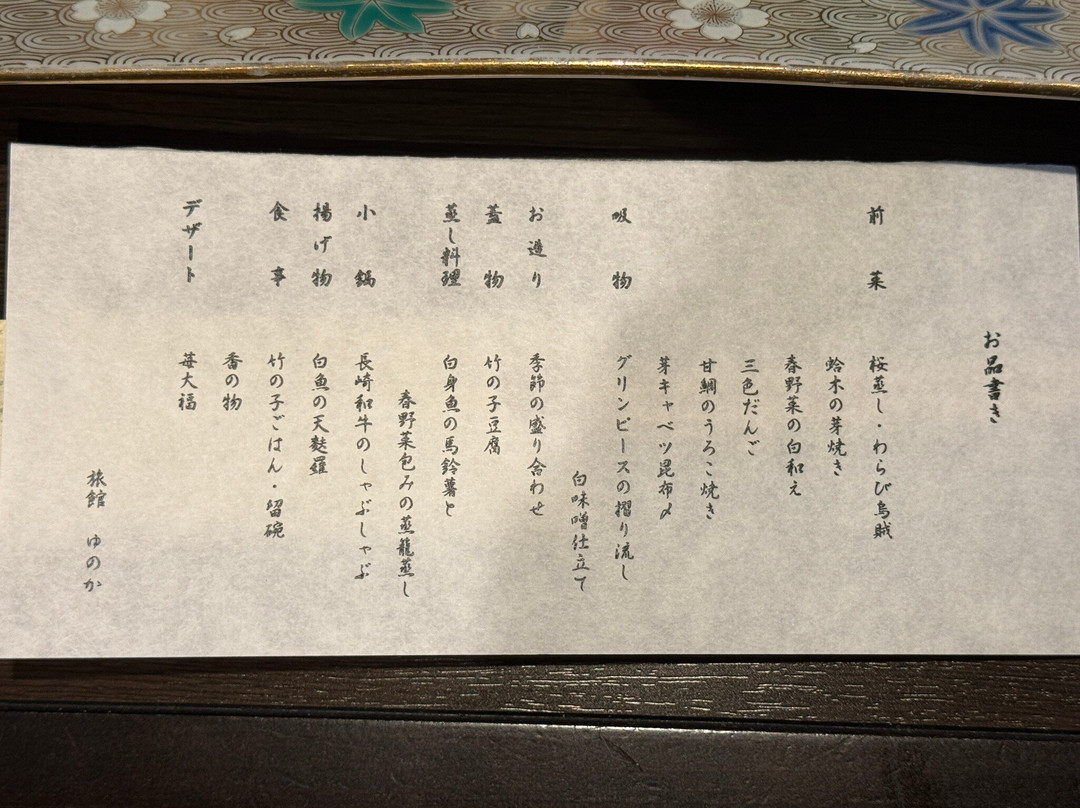 お品書き
前菜 桜蒸し・わらび烏賊
蛤木の芽焼き
春野菜の白和え
三色だんご
甘鯛のうろこ焼き
芽キャベツ昆布〆
吸物 グリンピースの摺り流し
白味噌仕立て
お造り 季節の盛り合わせ
蓋物 竹の子豆腐
蒸し料理 白身魚の馬鈴薯と
春野菜包みの蒸籠蒸し
小鍋 長崎和牛のしゃぶしゃぶ
揚げ物 白魚の天麩羅
食事 竹の子ごはん・留碗
香の物
デザート 苺大福
旅館 ゆのか